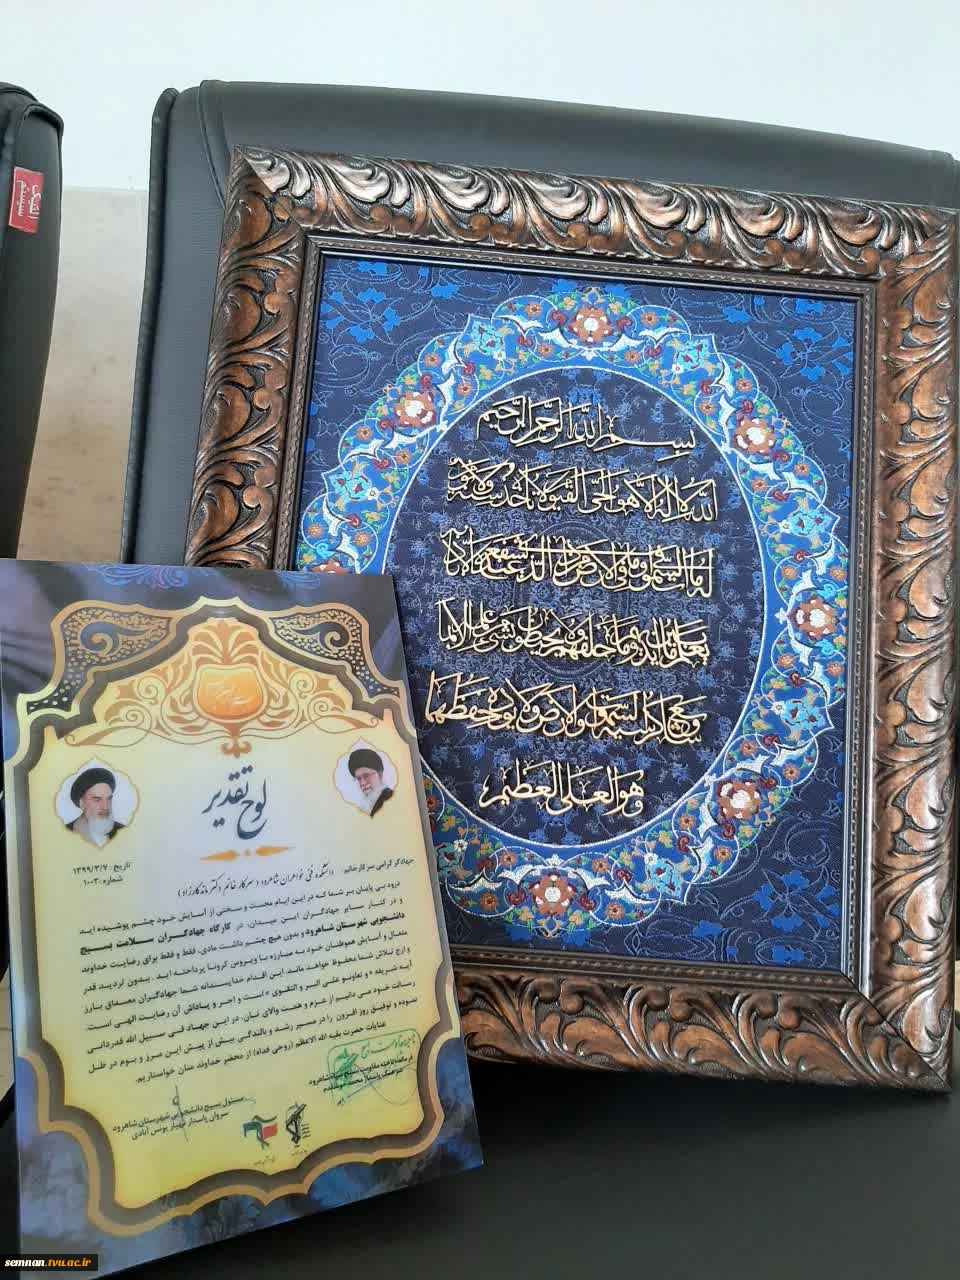 بسم الله الرحمن الرحیم
الله لا اله الا هو الحی القیوم لا تأخذه سنة ولا نوم
له ما فی السموات وما فی الارض من ذا الذی یشفع عنده الا باذنه
یعلم ما بین ایدیهم وما خلفهم ولا یحیطون بشیء من علمه الا بما
شاء وسع کرسیه السموات والارض ولا یؤده حفظهما
وهو العلی العظیم
لوح تقدیر
تاریخ: ۱۳۹۹/۳/۷
شماره: ۱۰۰۳
جهادگر گرامی سرکار خانم: دانشکده فنی خواهران شاهرود (سرکار خانم دکتر ماندگارزاد)
درود بی پایان بر شما که در این ایام محنت و سختی از آسایش خود چشم پوشیده اید
و در کنار سایر جهادگران این میدان، در کارگاه جهادگران سلامت بسیج
دانشجویی شهرستان شاهرود و بدون هیچ چشم داشت مادی، فقط و فقط برای رضایت خداوند
متعال و آسایش هموطنان خود به مبارزه با ویروس کرونا پرداخته اید . بدون تردید قدر
و ارج تلاش شما محفوظ خواهد ماند. این اقدام خداپسندانه شما جهادگران مصداق بارز
آیه شریفه « و تعاونو علی البر و التقوی » است و اجر و پاداش آن رضایت الهی است.
رسالت خود می دانیم از عزم و همت والای تان، در این جهاد فی سبیل الله قدردانی
نموده و توفیق روز افزون را در مسیر رشد و بالندگی بیش از پیش این مرز و بوم در ظل
عنایات حضرت بقیه الله الاعظم (روحی فداه) از محضر خداوند منان خواستاریم.
فرمانده ناحیه مقاومت بسیج سپاه شاهرود
مسئول بسیج دانشجویی شهرستان شاهرود
سروان پاسدار مهیار یونس آبادی
semnan.tvu.ac.ir